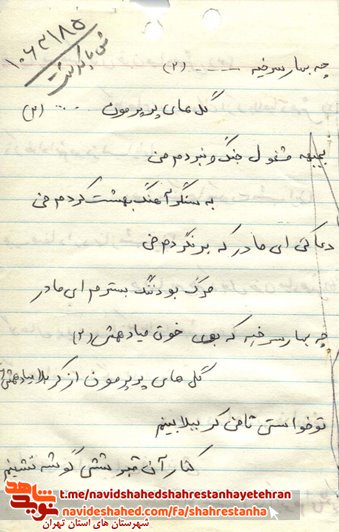 ۱۰۶۳۱۸۵
چه بهار سرخیه ..... (۲)
گل های پرپرمون .... (۲)
بجبهه مشغول جنگ و نبردم من
به سنگر آهنگ بهشت کردم من
دعا کن ای مادر که برنگردم من
مرگ بود ننگ بسترم ای مادر
چه بهار سرخیه که بوی خون میاد همش (۲)
گل های پرپرمون از کربلا میاد همش (۲)
تو خواستی تا من کربلا بینم
کنار آن قبر شش گوشه نشینم
نوید شاهد
t.me/navidshahedshahrestanhayetehran
navideshahed.com/fa/shahrestanha
شهرستان های استان تهران